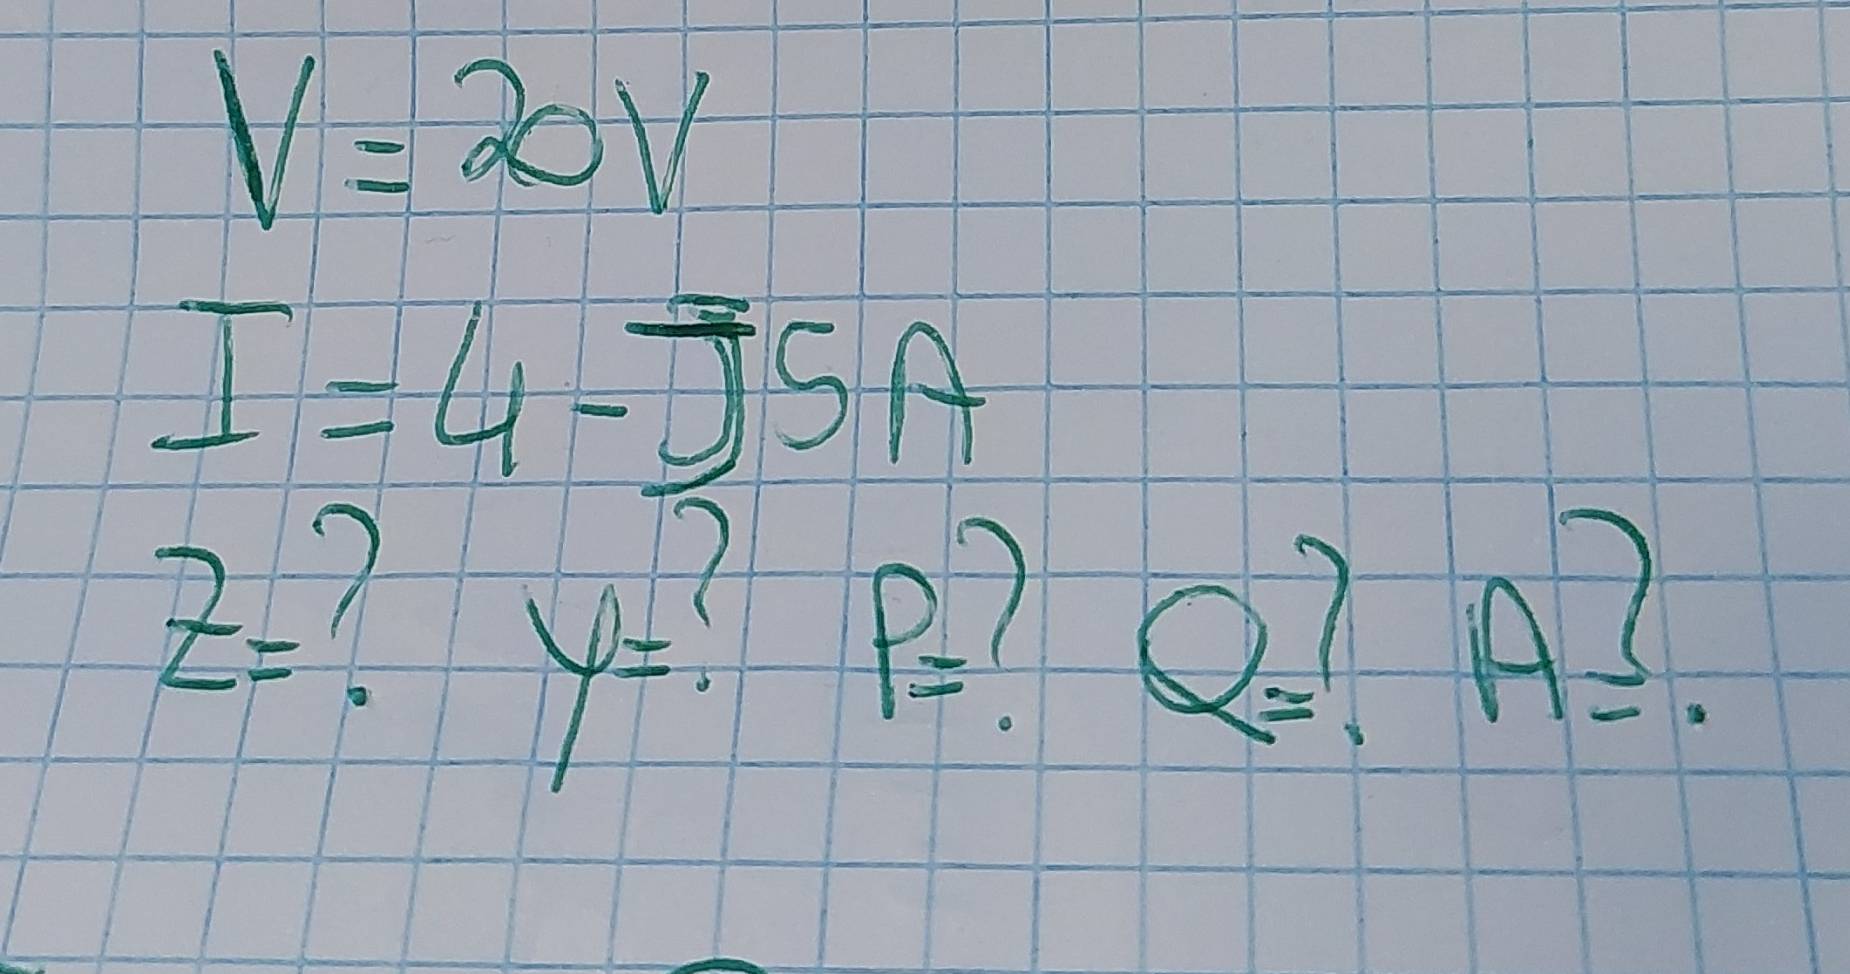 V = 20V
I = 4 - J5A
Z=? y=? P=? Q=? A=?